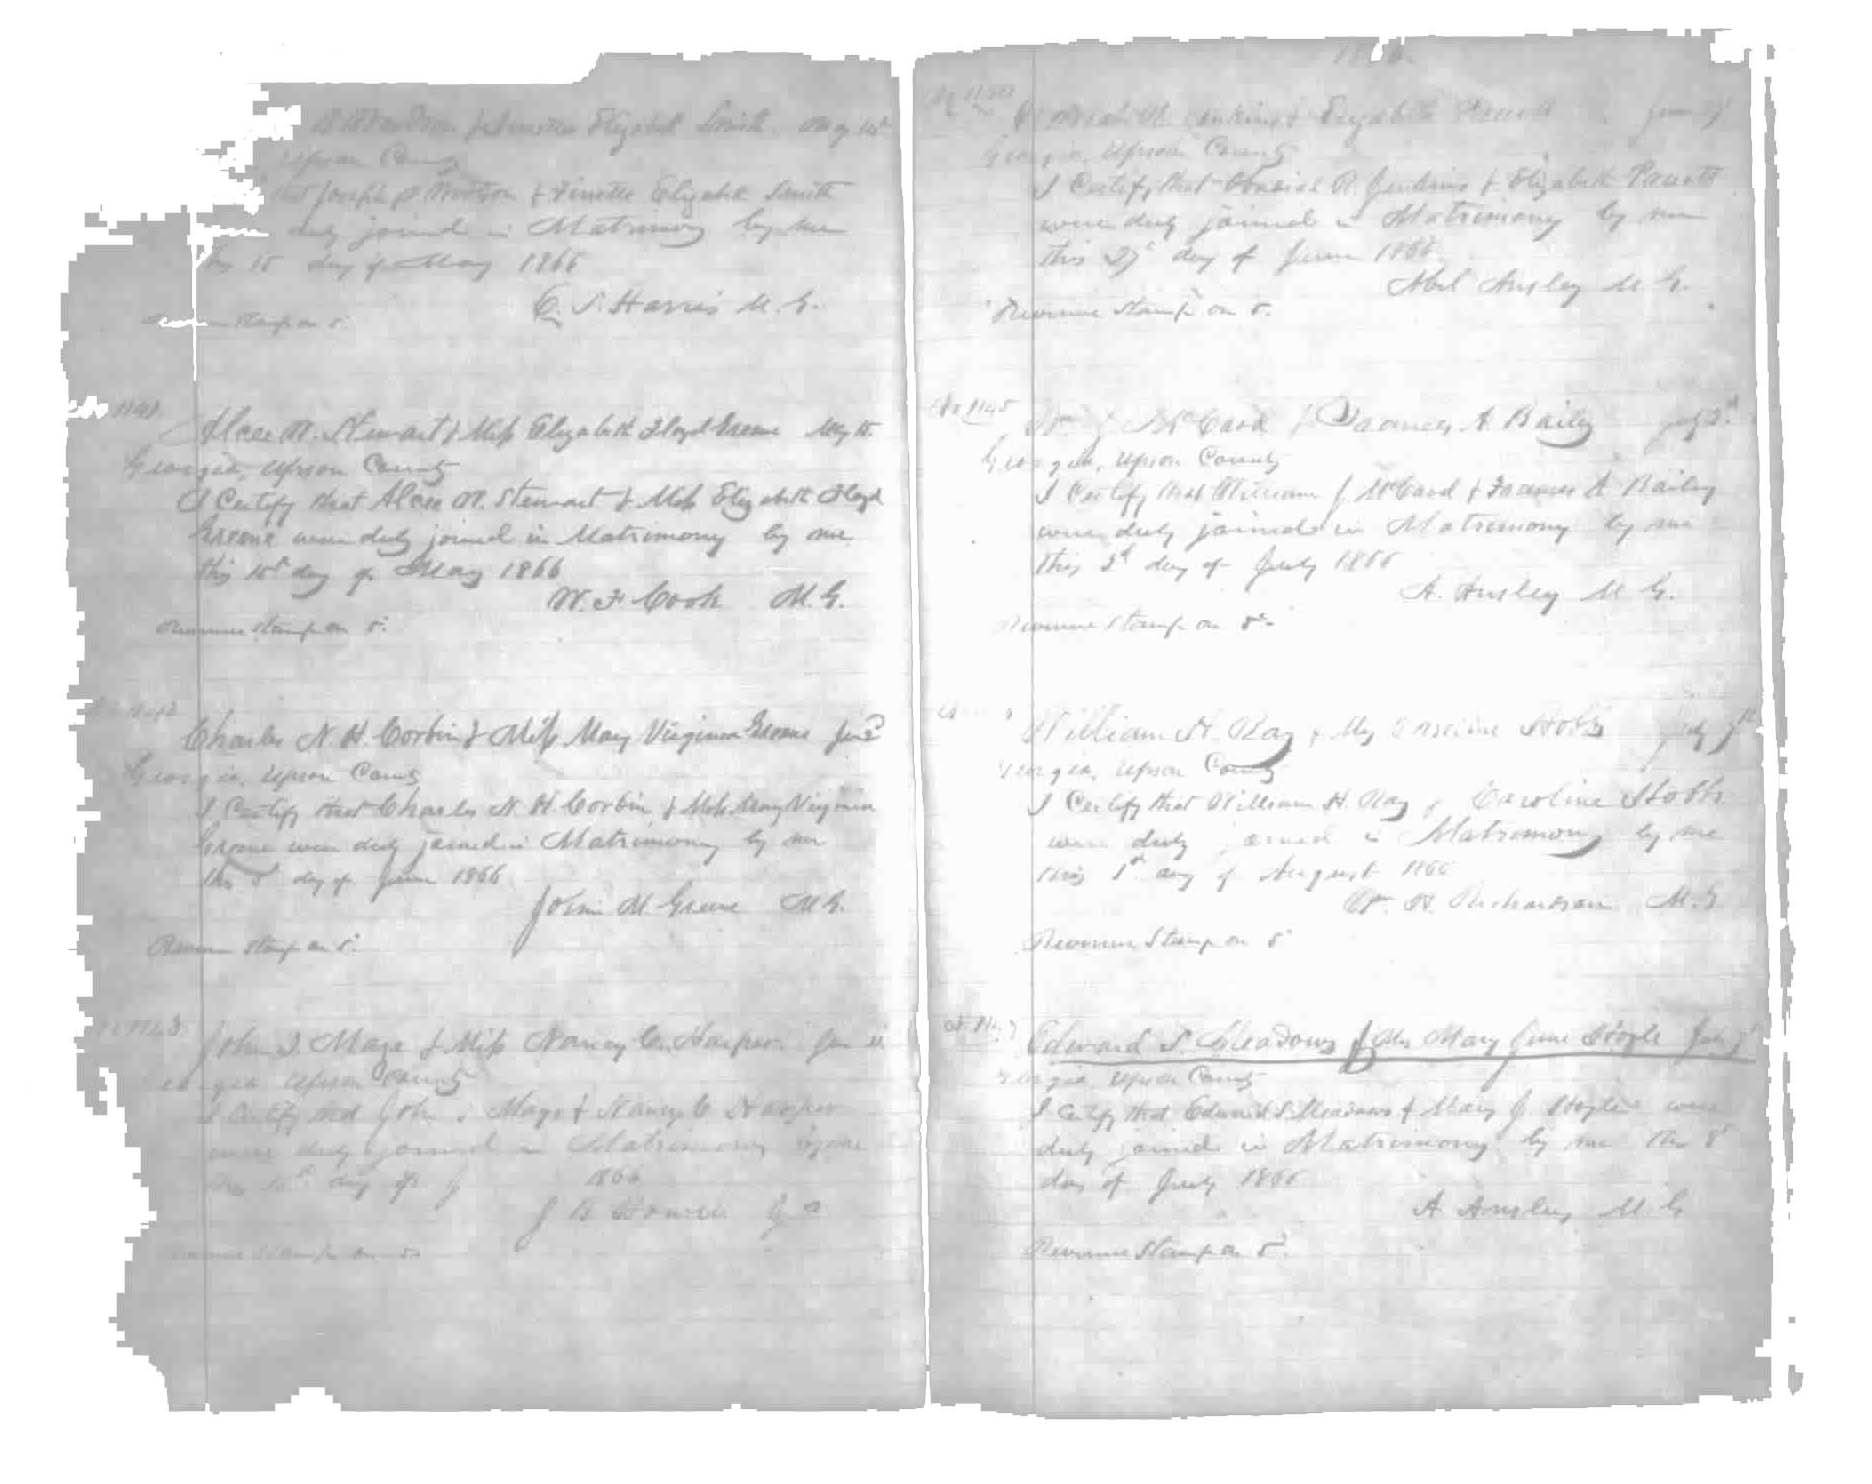 Elizabeth Smith May 10
Upson County
that Joseph & Finettee Elizabeth Smith
duly joined in Matrimony by me
this 10 day of May 1866
C. S. Harris M. G.
Stamp on 5.
1141
M. Stewart & Miss Elizabeth Floyd Greene May 10.
Georgia, Upson County
I Certify that M. Stewart & Miss Elizabeth Floyd
Greene were duly joined in Matrimony by me
this 10th day of May 1866
W. F. Cook M. G.
Revenue Stamp on 5.
Charles N. H. Corbin & Miss Mary Virginia Greene June
Georgia, Upson County
I Certify that Charles N. H. Corbin & Miss Mary Virginia
Greene were duly joined in Matrimony by me
this 5 day of June 1866
John M Greene M G.
Revenue Stamp on 5.
1143
John Maze & Miss Nancy C. Harper
Georgia Upson County
I Certify that John Maze & Nancy C Harper
were duly joined in Matrimony by me
this day of 1866
J B Howell
Revenue Stamp on 5.
1866
Jenkins & Elizabeth Parrott June 27
Georgia, Upson County
I Certify that R. Jenkins & Elizabeth Parrott
were duly joined in Matrimony by me
this 27th day of June 1866
Abel Ansley M G.
Revenue Stamp on 5.
No 1145
Wm J McCard & Frances A Bailey July 2d
Georgia, Upson County
I Certify that William J McCard & Frances A Bailey
were duly joined in Matrimony by me
this 2d day of July 1866
A. Ansley M G.
Revenue Stamp on 5c.
William H. Ray & Hobbs July
Georgia, Upson County
I Certify that William H. Ray & Caroline Hobbs
were duly joined in Matrimony by me
this 1st day of August 1866
W. H. Richardson M. G.
Revenue Stamp on 5
Edward S. Meadows & Mary Jane July
Georgia, Upson County
I Certify that Edward S. Meadows & Mary J. were
duly joined in Matrimony by me this 8
day of July 1866
A Ansley M. G
Revenue Stamp on 5.